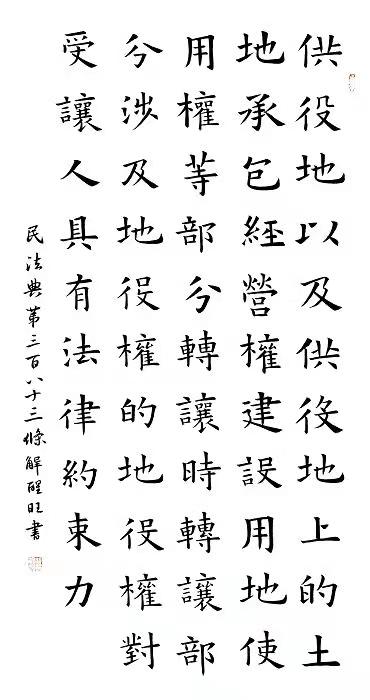 供役地以及供役地上的土
地承包經營權建設用地使
用權等部分轉讓時轉讓部
分涉及地役權的地役權對
受讓人具有法律約束力
民法典第三百八十三條解醒旺書